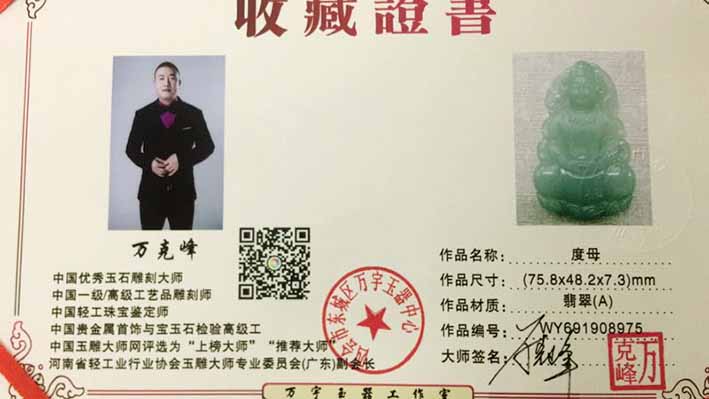 收藏證書
万克峰
中国优秀玉石雕刻大师
中国一级/高级工艺品雕刻师
中国轻工珠宝鉴定师
中国贵金属首饰与宝玉石检验高级工
中国玉雕大师网评选为“上榜大师”“推荐大师”
河南省轻工业行业协会玉雕大师专业委员会(广东)副会长
四会市东城区万宇玉器中心
作品名称: 度母
作品尺寸: (75.8x48.2x7.3)mm
作品材质: 翡翠(A)
作品编号: WY691908975
大师签名: 万克峰
万克峰
万宇玉器工作室